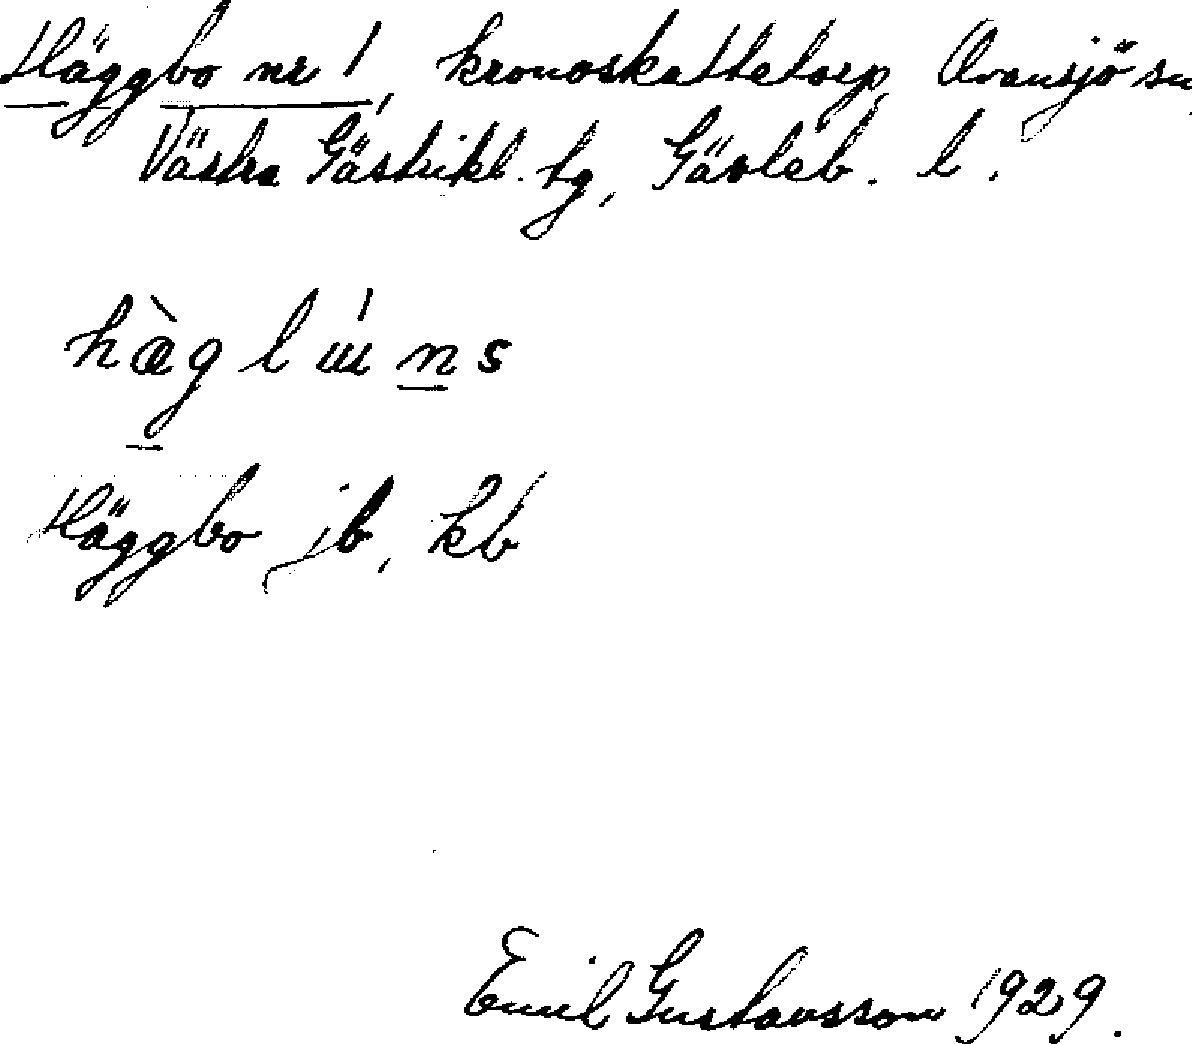 Häggbo nr 1, kronoskattetorp, Ovansjö sn,
Västra Gästrikl. tg, Gävleb. l.
hæ̀g l ɯ́ n s
Häggbo jb, kb
Emil Gustavsson 1929.